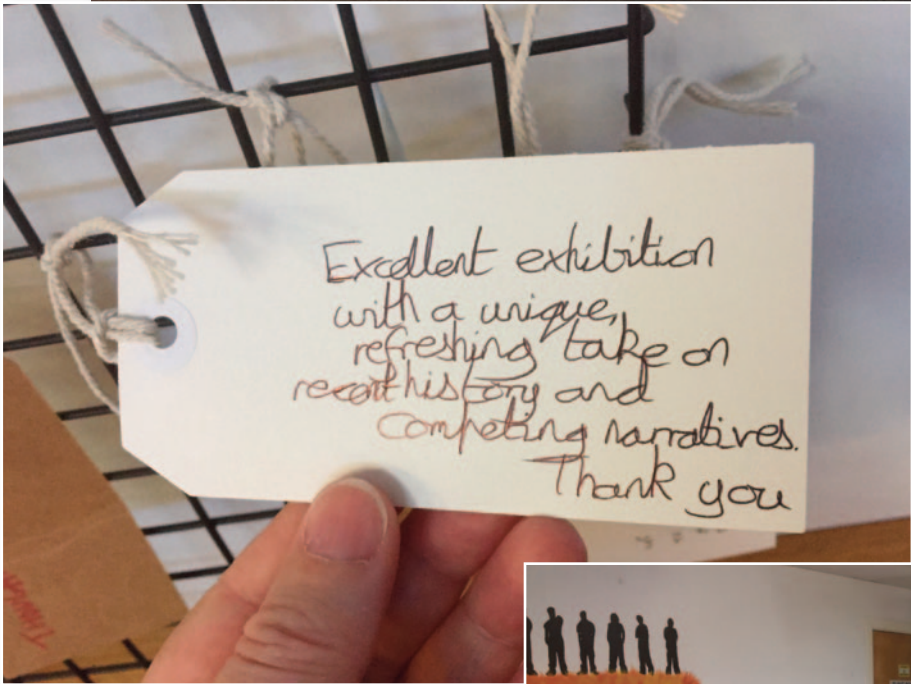 Excellent exhibition
with a unique,
refreshing take on
recent history and
competing narratives.
Thank you